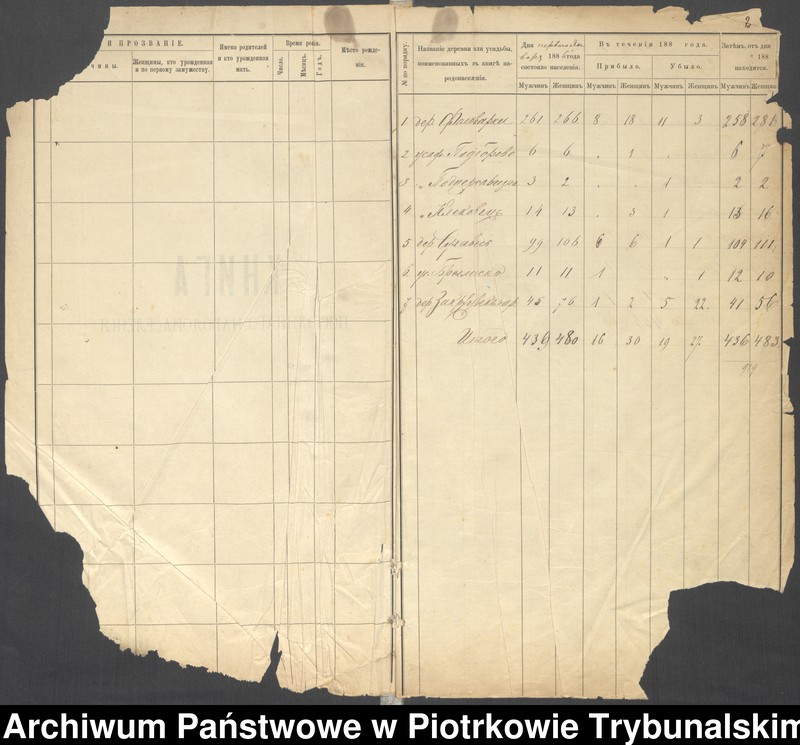 2
И ПРОЗВАНІЕ.
Женщины, кто урожденная и по первому замужеству.
Имена родителей и кто урожденная мать.
Время рожд.
Число.
Мѣсяцъ.
Годъ.
Мѣсто рожденія.
№ по порядку.
Названіе деревни или усадьбы, поименованныхъ въ книгѣ народонаселенія.
Дня
188 года состояло населенія.
Въ теченіи 188 года.
Прибыло.
Убыло.
Затѣмъ, отъ дня
188
находится.
Мужчинъ Женщинъ Мужчинъ Женщинъ Мужчинъ Женщинъ Мужчинъ Женщин
1 дер. Фольварки 261 266 8 18 11 3 258 281
2 усад. 6 6 . 1 . 6 7
3 " 3 2 . . 1 2 2
4 " 14 13 . 3 1 13 16
5 дер. 99 106 6 6 1 1 104 111
6 11 11 1 1 12 10
7 дер. 45 76 1 2 5 22 41 56
Итого 439 480 16 30 19 27 436 483
КНИГА
НАРОДОНАСЕЛЕНІЯ
Archiwum Państwowe w Piotrkowie Trybunalskim